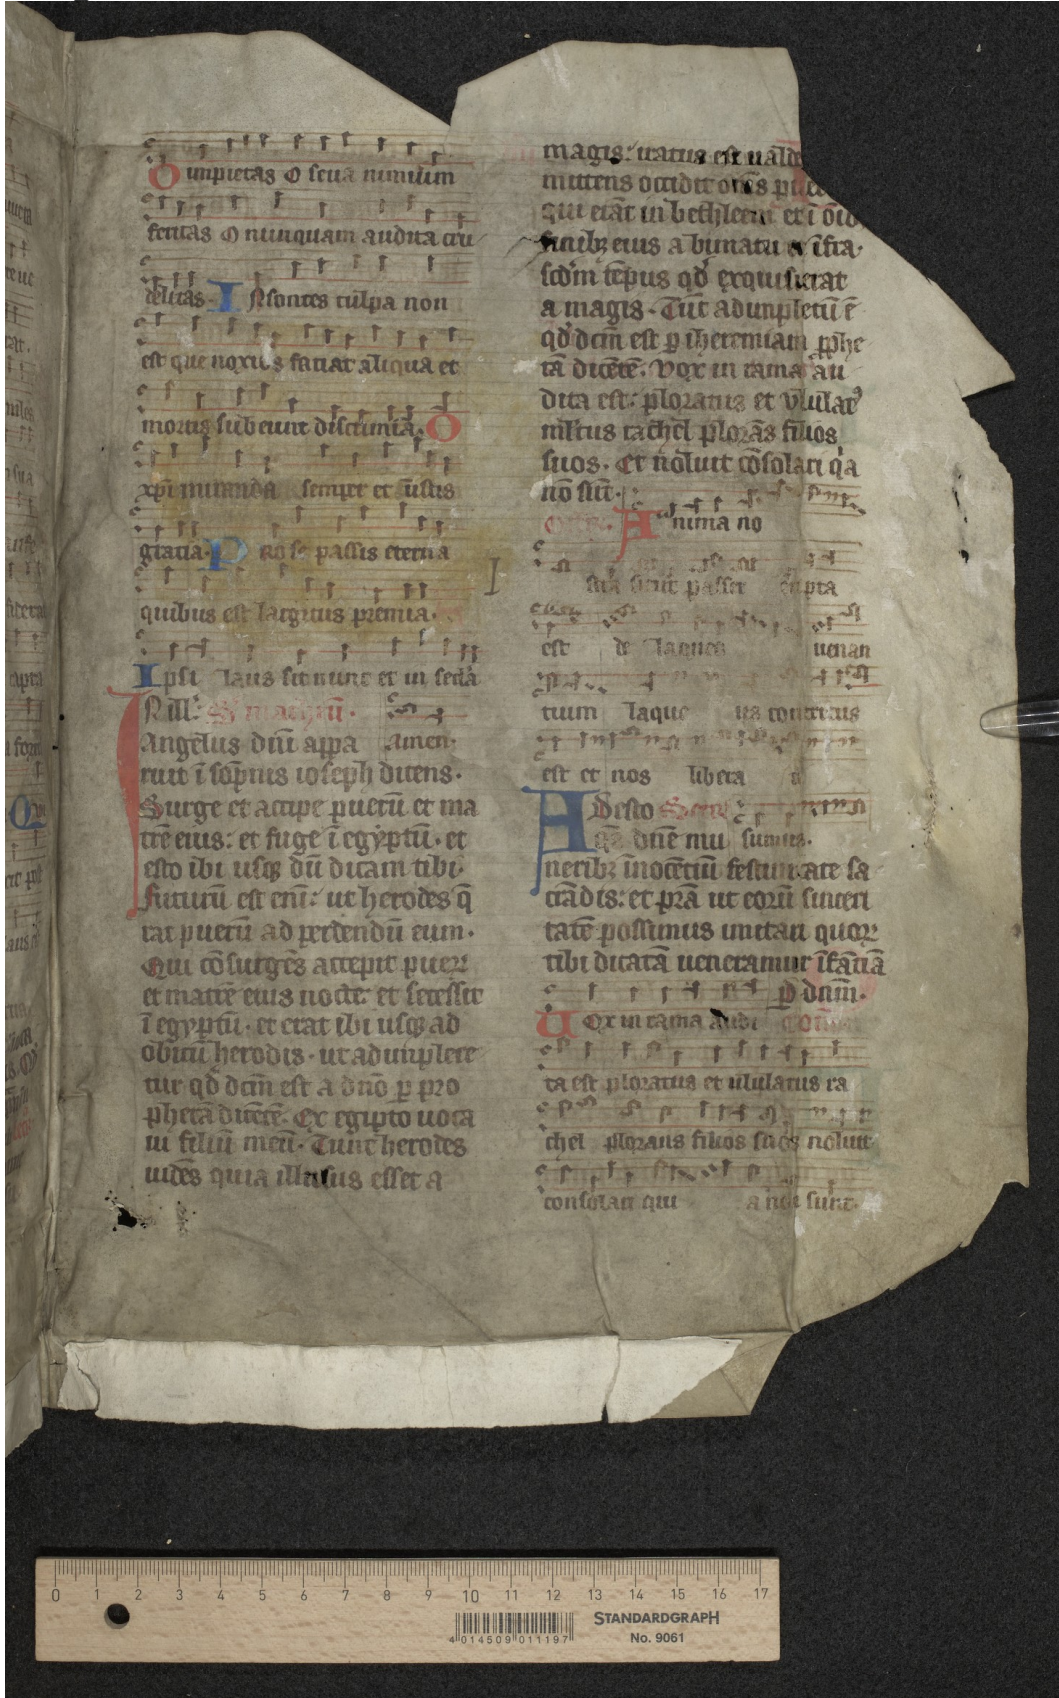 O impietas O seua nimium
feritas O nunquam audita cru
delitas. I Nsontes culpa non
est que noxios faciat aliqua et
mortis subeunt discrimīa. O
xp̄i miranda semper et iustis
gracia. P Ro se passis eterna
quibus est largitus premia.
Ipsi laus sit nunc et in secla
Amen.
N ill̄.
Angelus dn̄i appa
ruit ī sōpnis ioseph dicens.
Surge et accipe puerū et ma
trē eius: et fuge ī egyptū. et
esto ibi usqꝫ dū dicam tibi.
Futurū est enī: ut herodes q̄
rat puerū ad perdendū eum.
Qui cōsurgēs accepit pueꝝ
et matrē eius nocte: et secessit
ī egyptū. et erat ibi usqꝫ ad
obitū herodis. ut adunplere
tur qd̄ dc̄m est a dn̄o ꝑ pro
phetā dicētē. Ex egipto uoca
ui filiū meū. Tunc herodes
uidēs quia illusus esset a
magis: iratus est ualde
mittens occidit om̄s
qui erāt in bethleem et ī oīb
finibꝫ eius a bimatu et īfra.
scd̄m tēpus qd̄ exquisierat
a magis. Tūc adunpletū ē
qd̄ dc̄m est ꝑ iheremiam pphe
tā dicētē. Vox in rama au
dita est: ploratus et vlulatꝰ
mltus rachel plorās filios
suos. Et noluit cōsolari q̄a
nō sūt.
A nima no
stra sicut passer erepta
est de laqueo uenan
tium laque us contritus
est et nos libera
A Desto
qs̄ dn̄e mu sumus.
neribꝫ īnocētiū festiuitate sa
crādis: et prā ut eorū sinceri
tatē possimus imitari quoꝝ
tibi dicatā ueneramur īfātiā
P dn̄m.
U Ox in rama audi
ta est ploratus et ululatus ra
chel plorans filios suos noluit
consolari qui a non sunt.
I
0 1 2 3 4 5 6 7 8 9 10 11 12 13 14 15 16 17
4 014509 011197
STANDARDGRAPH
No. 9061